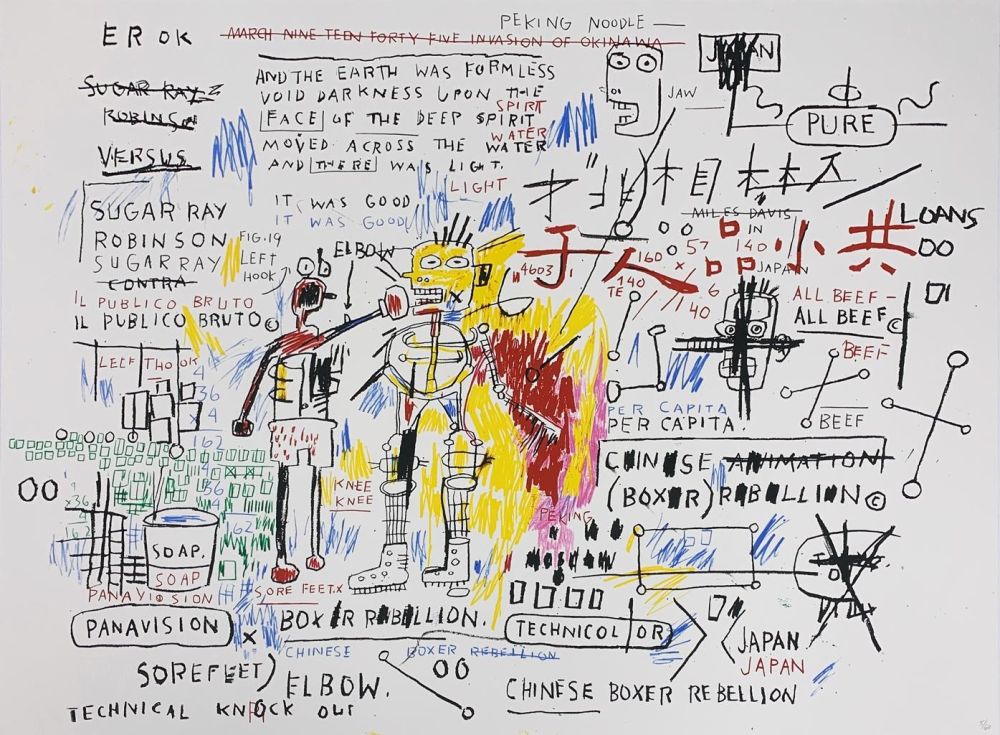 PEKING NOODLE
EROK
MARCH NINETEEN FORTY FIVE INVASION OF OKINAWA
JAPAN
SUGAR RAY
ROBINSON
VERSUS
AND THE EARTH WAS FORMLESS
VOID DARKNESS UPON THE
SPIRIT
FACE OF THE DEEP SPIRIT
WATER
MOVED ACROSS THE WATER
AND THERE WAS LIGHT.
LIGHT
JAW
PURE
IT WAS GOOD
IT WAS GOOD
SUGAR RAY
ROBINSON
SUGAR RAY
CONTRA
IL PUBLICO BRUTO
IL PUBLICO BRUTO©
FIG.19
LEFT
HOOK
ELBOW
MILES DAVIS
LOANS
00
子人品小共
IN
57
140
160
x
"4603
140
TE
6
40
JAPAN
ALL BEEF-
ALL BEEF©
BEEF
BEEF
PER CAPITA
PER CAPITA.
CHINESE ANIMATION
(BOXER) REBELLION©
LEFT HOOK
4
36
x4
162
4
36
4
162
00
x36
SOAP.
SOAP
KNEE
KNEE
PEKING
MOSCOW
PANAVISION
PANAVISION
SORE FEET.X
x
BOXER REBELLION.
TECHNICOLOR
CHINESE BOXER REBELLION
00
JAPAN
JAPAN
SOREFEET)
ELBOW.
CHINESE BOXER REBELLION
TECHNICAL KNOCK OUT